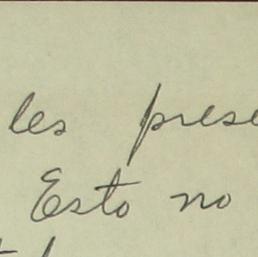 les prese
Esto no